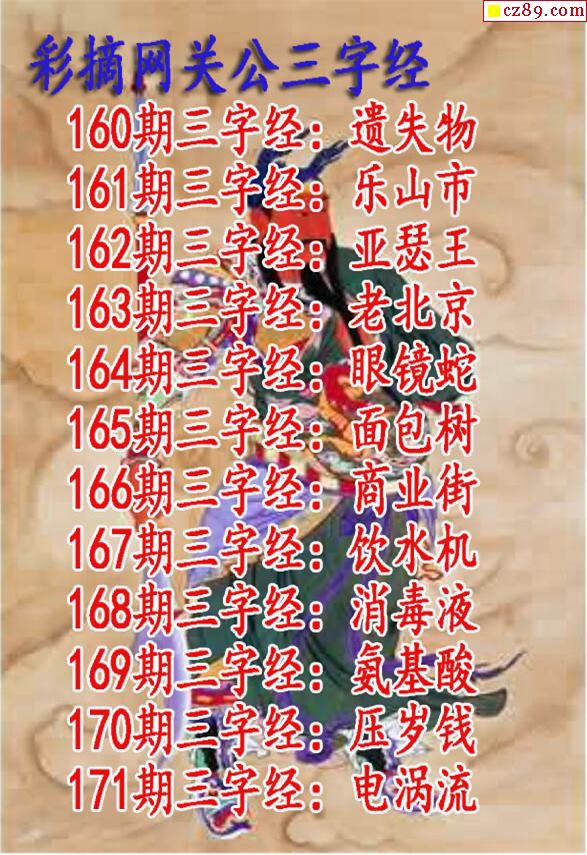 cz89.com
彩摘网关公三字经
160期三字经：遗失物
161期三字经：乐山市
162期三字经：亚瑟王
163期三字经：老北京
164期三字经：眼镜蛇
165期三字经：面包树
166期三字经：商业街
167期三字经：饮水机
168期三字经：消毒液
169期三字经：氨基酸
170期三字经：压岁钱
171期三字经：电涡流